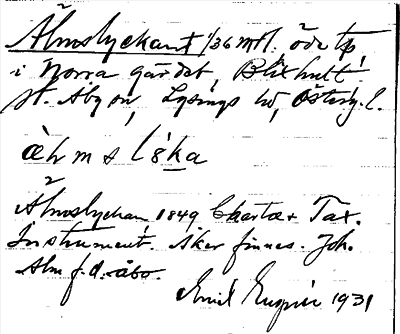 Älmslyckan 1/36 mtl. öde tp
i Norra gärdet, Blixhult
St. Åby sn, Lysings hd, Österg. l.
àl m s l ý k a
Älmslyckan 1849 Charta + Tax.
Instrument. Åker finnes. Joh.
Alm f.d. åbo.
Emil 1931